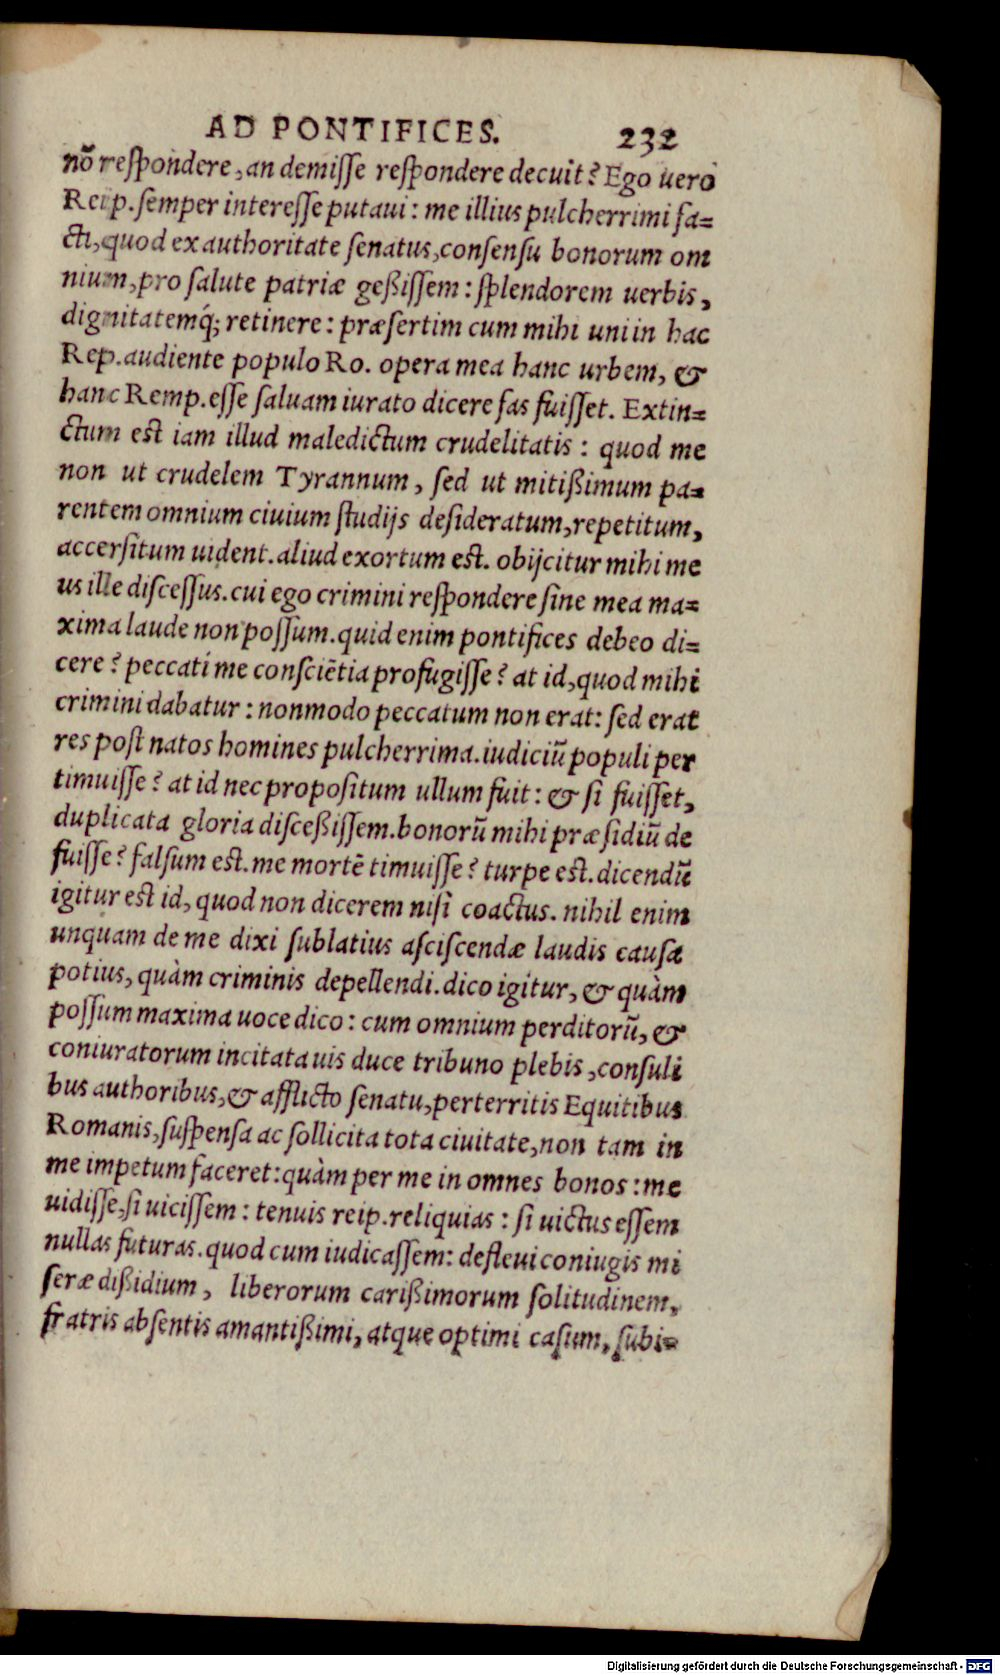 AD PONTIFICES. 232
nõ respondere, an demisse respondere decuit? Ego uerò
Reip. semper interesse putaui: me illius pulcherrimi fa=
cti, quod ex authoritate senatus, consensu bonorum om
nium, pro salute patriæ geßissem: splendorem uerbis,
dignitatemq́; retinere: præsertim cum mihi uni in hac
Rep. audiente populo Ro. opera mea hanc urbem, &
hanc Remp. esse saluam iurato dicere fas fuisset. Extin=
ctum est iam illud maledictum crudelitatis: quod me
non ut crudelem Tyrannum, sed ut mitißimum pa=
rentem omnium ciuium studijs desideratum, repetitum,
accersitum uident. aliud exortum est. obijcitur mihi me
us ille discessus. cui ego crimini respondere sine mea ma=
xima laude non possum. quid enim pontifices debeo di=
cere? peccati me consciẽtia profugisse? at id, quod mihi
crimini dabatur: nonmodo peccatum non erat: sed erat
res post natos homines pulcherrima. iudiciũ populi per
timuisse? at id nec propositum ullum fuit: & si fuisset,
duplicata gloria disceßissem. bonorũ mihi præsidiũ de
fuisse? falsum est. me mortẽ timuisse? turpe est. dicendũ
igitur est id, quod non dicerem nisi coactus. nihil enim
unquam de me dixi sublatius asciscendæ laudis causa
potius, quàm criminis depellendi. dico igitur, & quàm
possum maxima uoce dico: cum omnium perditorũ, &
coniuratorum incitata uis duce tribuno plebis, consuli
bus authoribus, & afflicto senatu, perterritis Equitibus
Romanis, suspensa ac sollicita tota ciuitate, non tam in
me impetum faceret: quàm per me in omnes bonos: me
uidisse, si uicissem: tenuis reip. reliquias: si uictus essem
nullas futuras. quod cum iudicassem: defleui coniugis mi
seræ dißidium, liberorum carißimorum solitudinem,
fratris absentis amantißimi, atque optimi casum, subi=
Digitalisierung gefördert durch die Deutsche Forschungsgemeinschaft - DFG